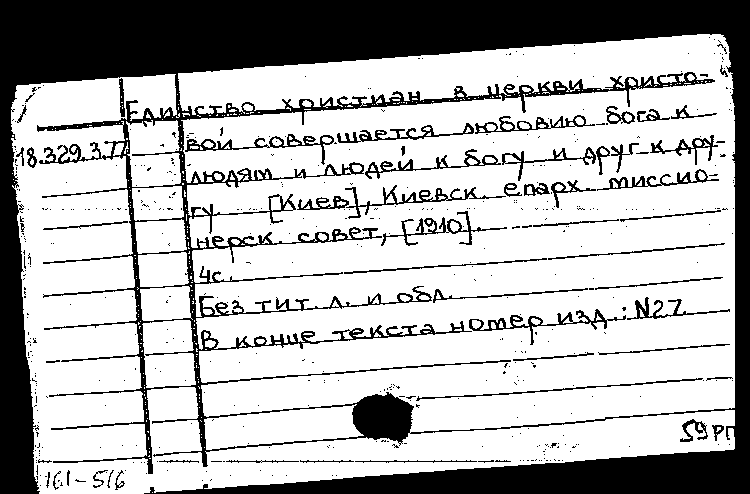 Единство христиан в церкви христо-
18.329.3.77 вой совершается любовию бога к
людям и людей к богу и друг к дру-
гу. [Киев], Киевск. епарх. миссио-
нерск. совет, [1910].
4с.
Без тит. л. и обл.
В конце текста номер изд.: N27
59 РП
161-516